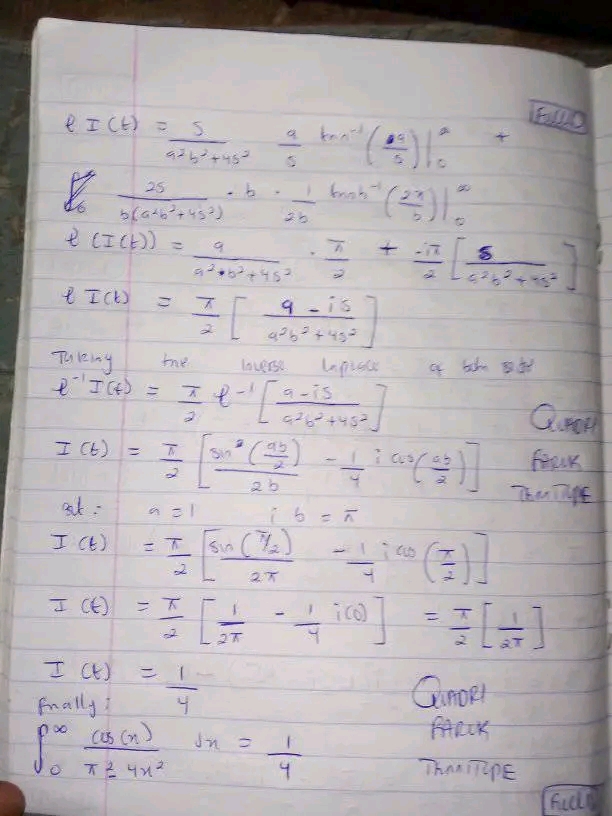 ℓ I(t) = s/(a²b²+4s²) a/s tan⁻¹(a/s)|₀^∞ +
2s/(b(a²b²+4s²)) · b · 1/2b tanh⁻¹(2x/b)|₀^∞
ℓ(I(t)) = a/(a²·b²+4s²) · π/2 + -iπ/2 [s/(a²b²+4s²)]
ℓ I(t) = π/2 [(a-is)/(a²b²+4s²)]
Taking the inverse laplace of both side
ℓ⁻¹ I(t) = π/2 ℓ⁻¹ [(a-is)/(a²b²+4s²)]
QUADRI
FARUK
I(t) = π/2 [sin(ab/2)/2b - 1/4 i cos(ab/2)]
But: a=1 ; b=π
I(t) = π/2 [sin(π/2)/2π - 1/4 i cos(π/2)]
I(t) = π/2 [1/2π - 1/4 i(0)] = π/2 [1/2π]
I(t) = 1/4
finally;
∫₀^∞ cos(x)/(π²-4x²) dx = 1/4
QUADRI
FARUK